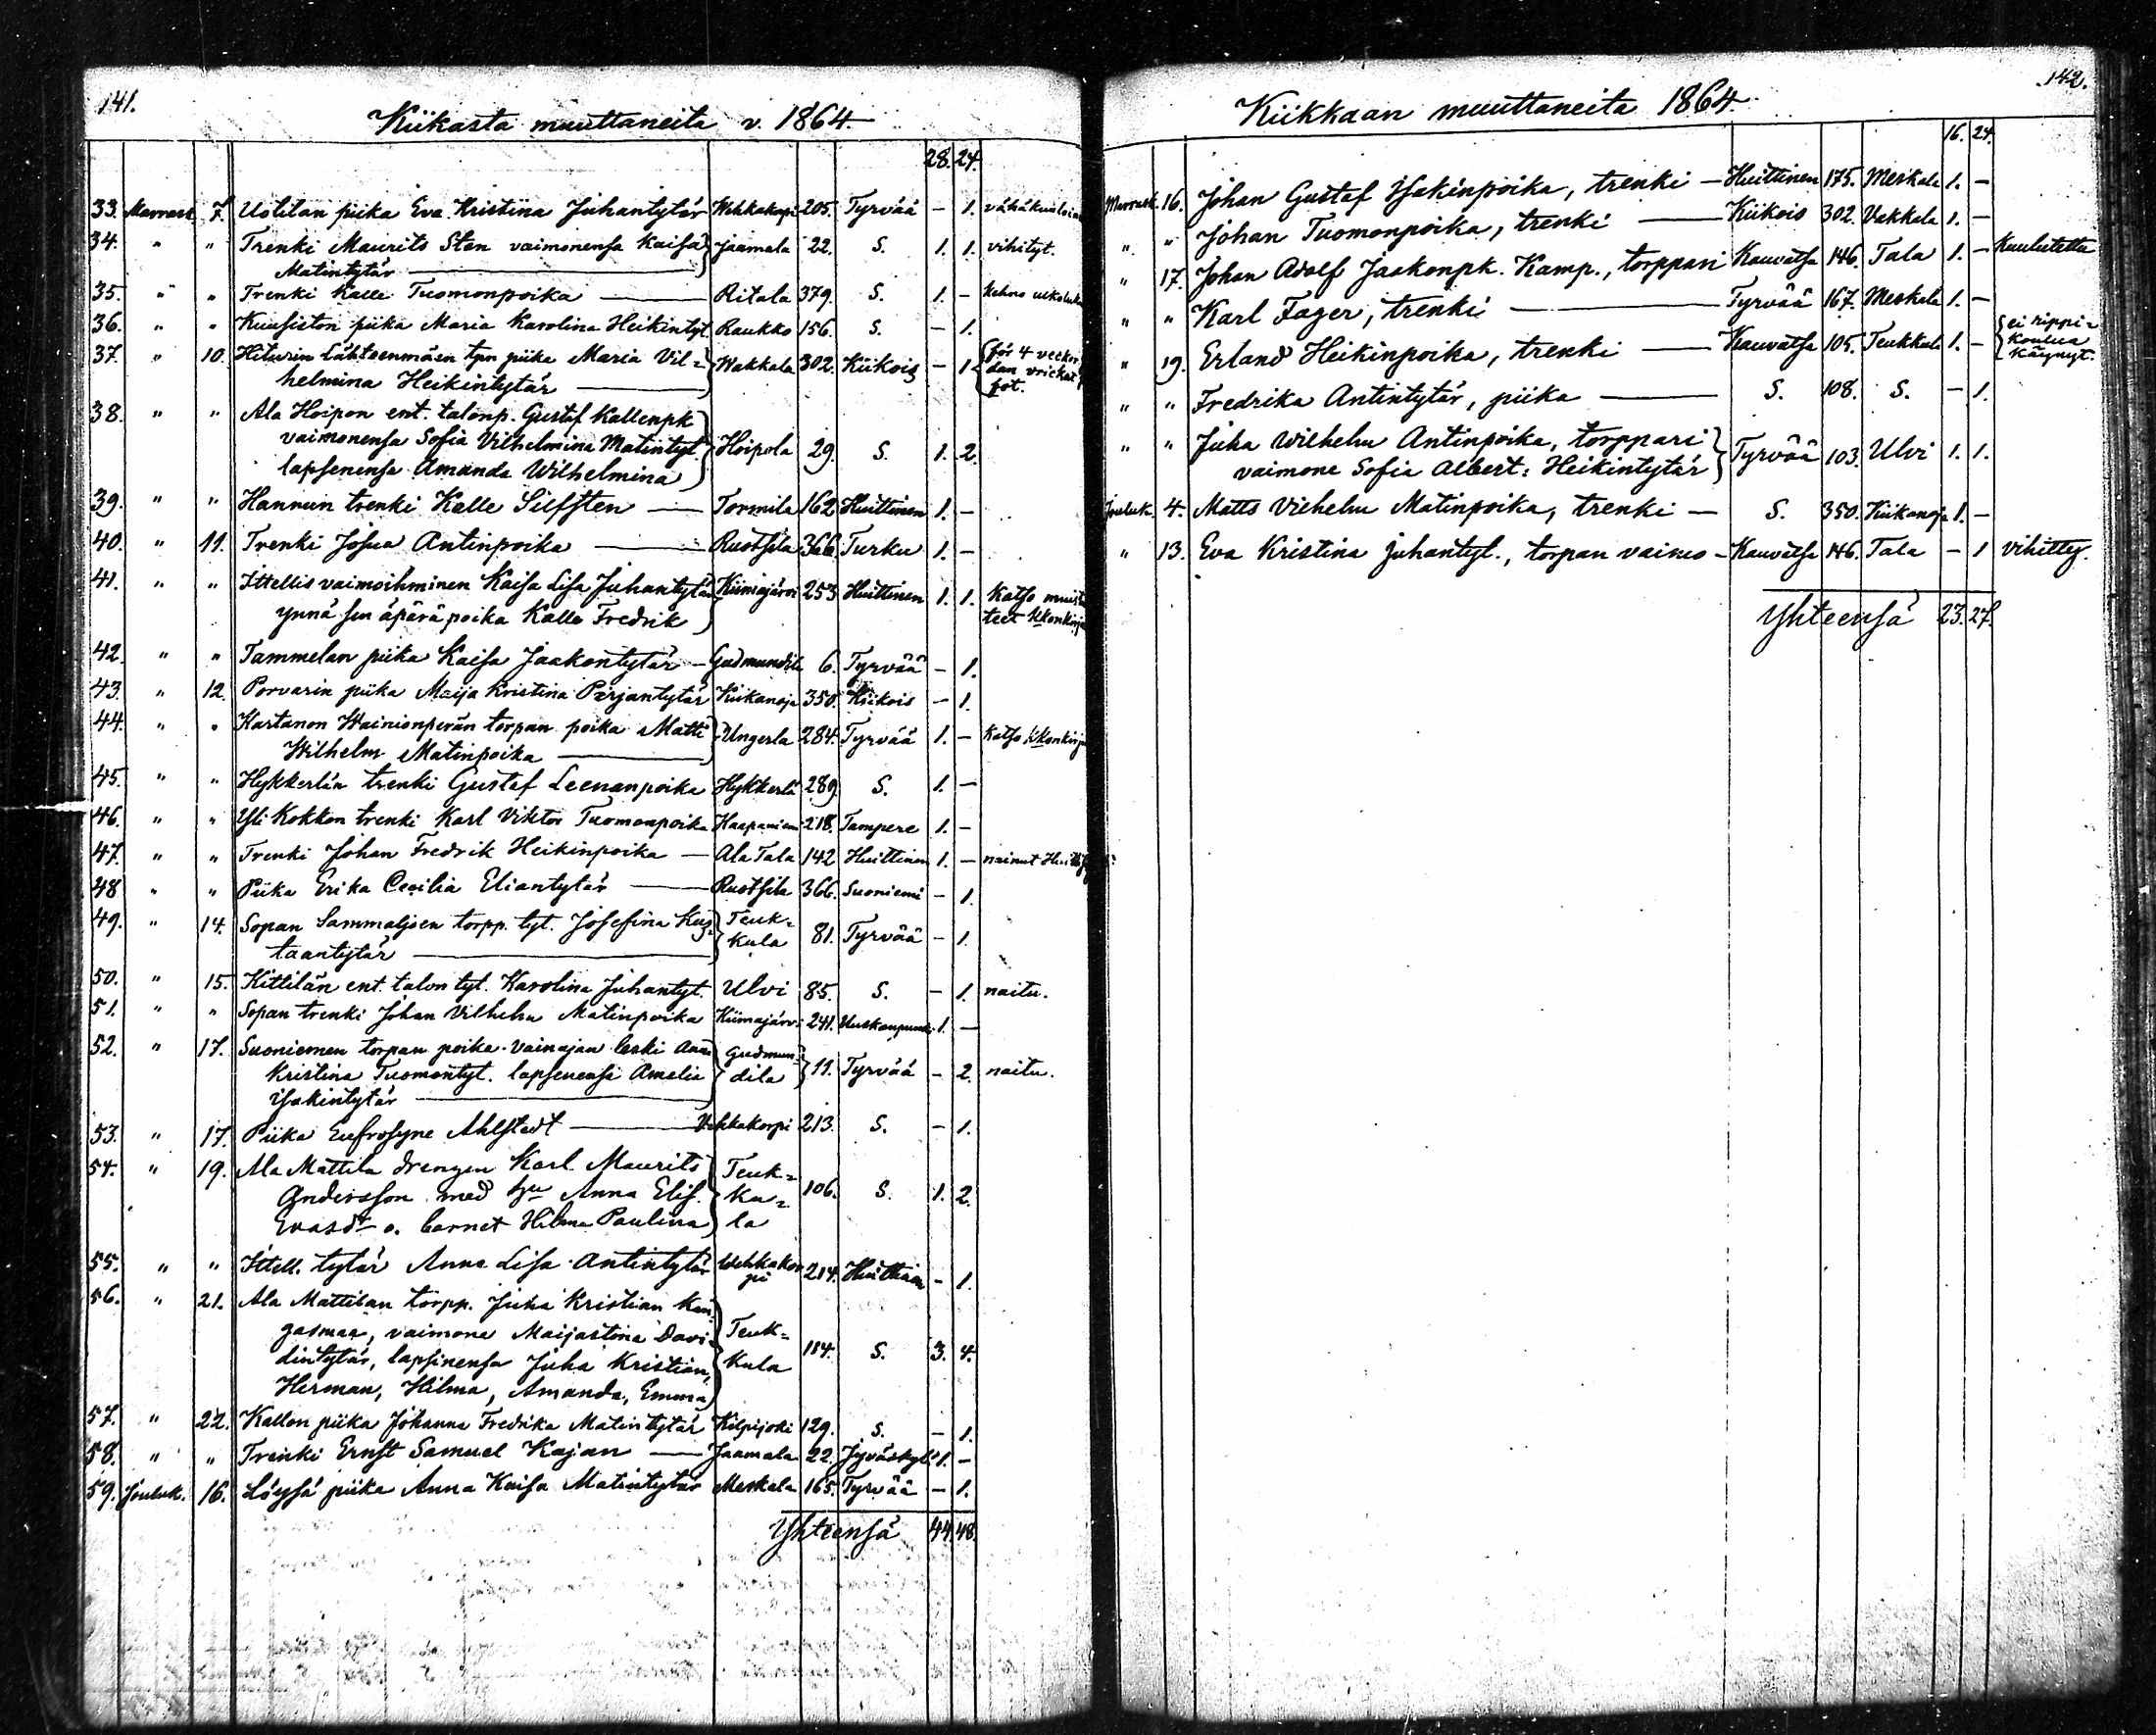 141.
Kiikasta muuttaneita v. 1864.
28. 24.
33. Marrask. 7. Uotilan piika Eva Kristiina Juhantytär Wehkakorpi 205. Tyrvää – 1.
34. " " Trenki Maurits Sten vaimonensa Kaisa Jaamala 22. S. 1. 1. vihityt.
Matintytär
35. " " Trenki Kalle Tuomonpoika Ritala 379. S. 1. –
36. " " Kuusiston piika Maria Karolina Heikintyt. Raukko 156. S. – 1.
37. " 10. Hiturin Lähteenmäen tpn piika Maria Vil= Wakkala 302. Kiikois – 1. för 4 veckor
helmina Heikintytär
38. " " Ala Hoipon ent. talonp. Gustaf Kallenpk
vaimonensa Sofia Vilhelmina Matintyt. Hoipola 29. S. 1. 2.
lapsenensa Amanda Wilhelmina
39. " " Hannun trenki Kalle Silfsten Tormila 162 Huittinen 1. –
40. " 11. Trenki Josua Antinpoika Ruotsila 366. Turku 1. –
41. " " Ittellis vaimoihminen Kaisa Lisa Juhantytär Kiimajärvi 253 Huittinen 1. 1. Katso muist
ynnä sen äpärä poika Kalle Fredrik teet Kkonkirja
42. " " Tammelan piika Kaisa Jaakontytär – Gudmundila 6. Tyrvää – 1.
43. " 12. Porvarin piika Maija Kristina Pirjantytär Kiikanoja 350. Kiikois – 1.
44. " " Kartanon Wainionperän torpan poika Matti Ungerla 284. Tyrvää 1. – Katso Kkonkirja
Wilhelm Matinpoika
45. " " Hykkerlän trenki Gustaf Leenanpoika Hykkerlä 289. S. 1. –
46. " " Yli Kokkon trenki Karl Viktor Tuomonpoika Haapaniemi 218. Tampere 1. –
47. " " Trenki Johan Fredrik Heikinpoika – Ala Tala 142 Huittinen 1. – nainut
48 " " Piika Erika Cecilia Eliantytär Ruotsila 366. Suoniemi – 1.
49. " 14. Sopan Sammaljoen torpp. tyt. Josefina Kus= Teuk=
kula 81. Tyrvää – 1.
taantytär
50. " 15. Kittilän ent. talon tyt. Karolina Juhantyt. Ulvi 85. S. – 1. naitu.
51. " " Sopan trenki Johan Vilhelm Matinpoika Kiimajärvi 241. Uuskaupunki 1. –
52. " 17. Suoniemen torpan poika-vainajan leski Anna Gudmun=
Kristina Tuomontyt. lapsenensa Amelia dila 11. Tyrvää – 2. naitu.
Isakintytär
53. " 17. Piika Eufrosyne Ahlstedt Vehkakorpi 213. S. – 1.
54. " 19. Ala Mattila drengen Karl Maurits Teuk=
Andersson med hu Anna Elis. ku= 106. S. 1. 2.
Evasdr o. barnet Hilma Paulina la
55. " " Ittell. tytär Anna Lisa Antintytär Wehkakor
pi 214. Huittinen – 1.
56. " 21. Ala Mattilan torpp. Juha Kristian Kan
gasmaa, vaimona Maijastina Davi= Teuk=
dintytär, lapsinensa Juha Kristian, kula 114. S. 3. 4.
Herman, Hilma, Amanda, Emma
57. " 22. Kallon piika Johanna Fredrika Matintytär Kilpijoki 129. S. – 1.
58. " " Trenki Ernst Samuel Kajan Jaamala 22. Jyväskylä 1. –
59. Jouluk. 16. Löysä piika Anna Kaisa Matintytär Meskala 165. Tyrvää – 1.
Yhteensä 44. 48.
142.
Kiikkaan muuttaneita 1864.
16. 24.
Marrask. 16. Johan Gustaf Isakinpoika, trenki – Huittinen 175. Meskala 1. –
" " Johan Tuomonpoika, trenki Kiikois 302. Vakkala 1. –
" 17. Johan Adolf Jaakonpk. Kamp., torppari Kauvatsa 146. Tala 1. – Kuulutettu
" " Karl Fager, trenki Tyrvää 167. Meskala 1. –
" 19. Erland Heikinpoika, trenki Kauvatsa 105. Teukkula 1. – ei rippi=
koulua
käynyt.
" " Fredrika Antintytär, piika S. 108. S. – 1.
" " Juha Wilhelm Antinpoika, torppari
vaimone Sofia Albert: Heikintytär Tyrvää 103. Ulvi 1. 1.
Jouluk. 4. Matts Vilhelm Matinpoika, trenki – S. 350. Kiikanoja 1. –
" 13. Eva Kristina Juhantyt., torpan vaimo – Kauvatsa 146. Tala – 1 vihitty.
Yhteensä 23. 27.